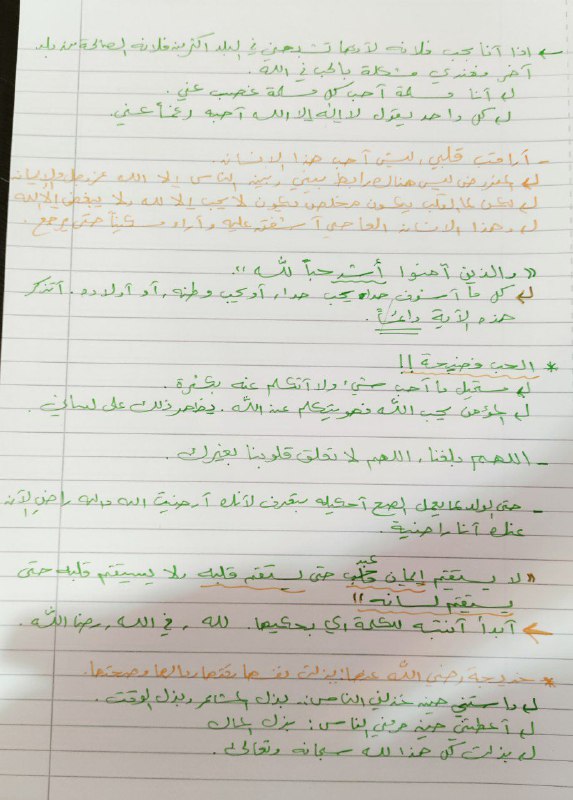 ← اذا أنا بحب فلانة لأنها تشبهني في البلد أكثر من فلانة الصالحة من بلد
آخر فعندي مشكلة بالحب في الله.
↳ أنا مسلمة أحب كل مسلمة غصب عني.
↳ كل واحد يقول لا إله إلا الله أحبه رغماً عني.
- أراقب قلبي، ليش أحب هذا الإنسان.
↳ المفروض ليس هناك رابط بيني وبين الناس إلا الله عز وجل والإيمان
↳ لكن لما القلب يكون مخلص فيكون لا يحب إلا لله ولا يبغض إلا لله
↳ وهذا الإنسان العاصي أشفق عليه وأراه مسكيناً حتى يرجع.
« والذين آمنوا أشد حباً لله »
↳ كل ما أشوف حدا يحب حدا، أو يحب وطنه، أو أولاده. أتذكر
هذه الآية دائماً.
* الحب فضيحة !!
↳ مستحيل ما أحب شيء ولا أتكلم عنه بكثرة.
↳ المؤمن يحب الله فهو يتكلم عن الله. فيظهر ذلك على لساني.
- اللهم بلغنا، اللهم لا تعلق قلوبنا بغيرك.
- حتى الولد لما يعمل الصح أحكيله بتعرف لأنك أرضيت الله والله راضي الآن
عنك أنا راضية.
« لا يستقيم إيمان عبد حتى يستقيم قلبه ولا يستقيم قلبه حتى
يستقيم لسانه !!
← أبدأ أنتبه للكلمة أي بحكيها. لله، في الله، رضا الله.
* خديجة رضي الله عنها: بذلت نفسها وقتها ومالها وصحتها.
↳ واستني حين خذلني الناس.. بذل المشاعر وبذل الوقت.
↳ أعطتني حين حرمني الناس: بذل المال
↳ بذلت كل هذا لله سبحانه وتعالى.